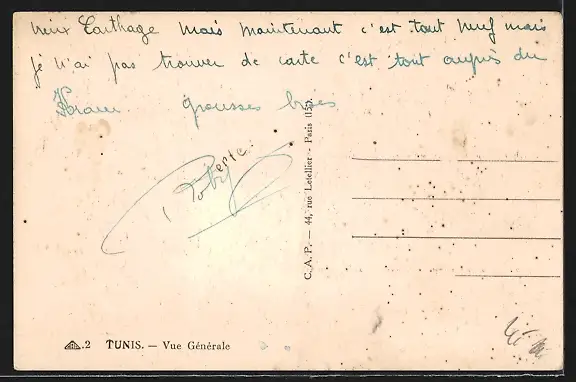 vieux Carthage mais maintenant c'est tout neuf mais
je n'ai pas trouver de carte c'est tout auprès du
Kram grousses bises
Roberte
C. A. P. — 44, rue Letellier - Paris (15e).
2 TUNIS. — Vue Générale